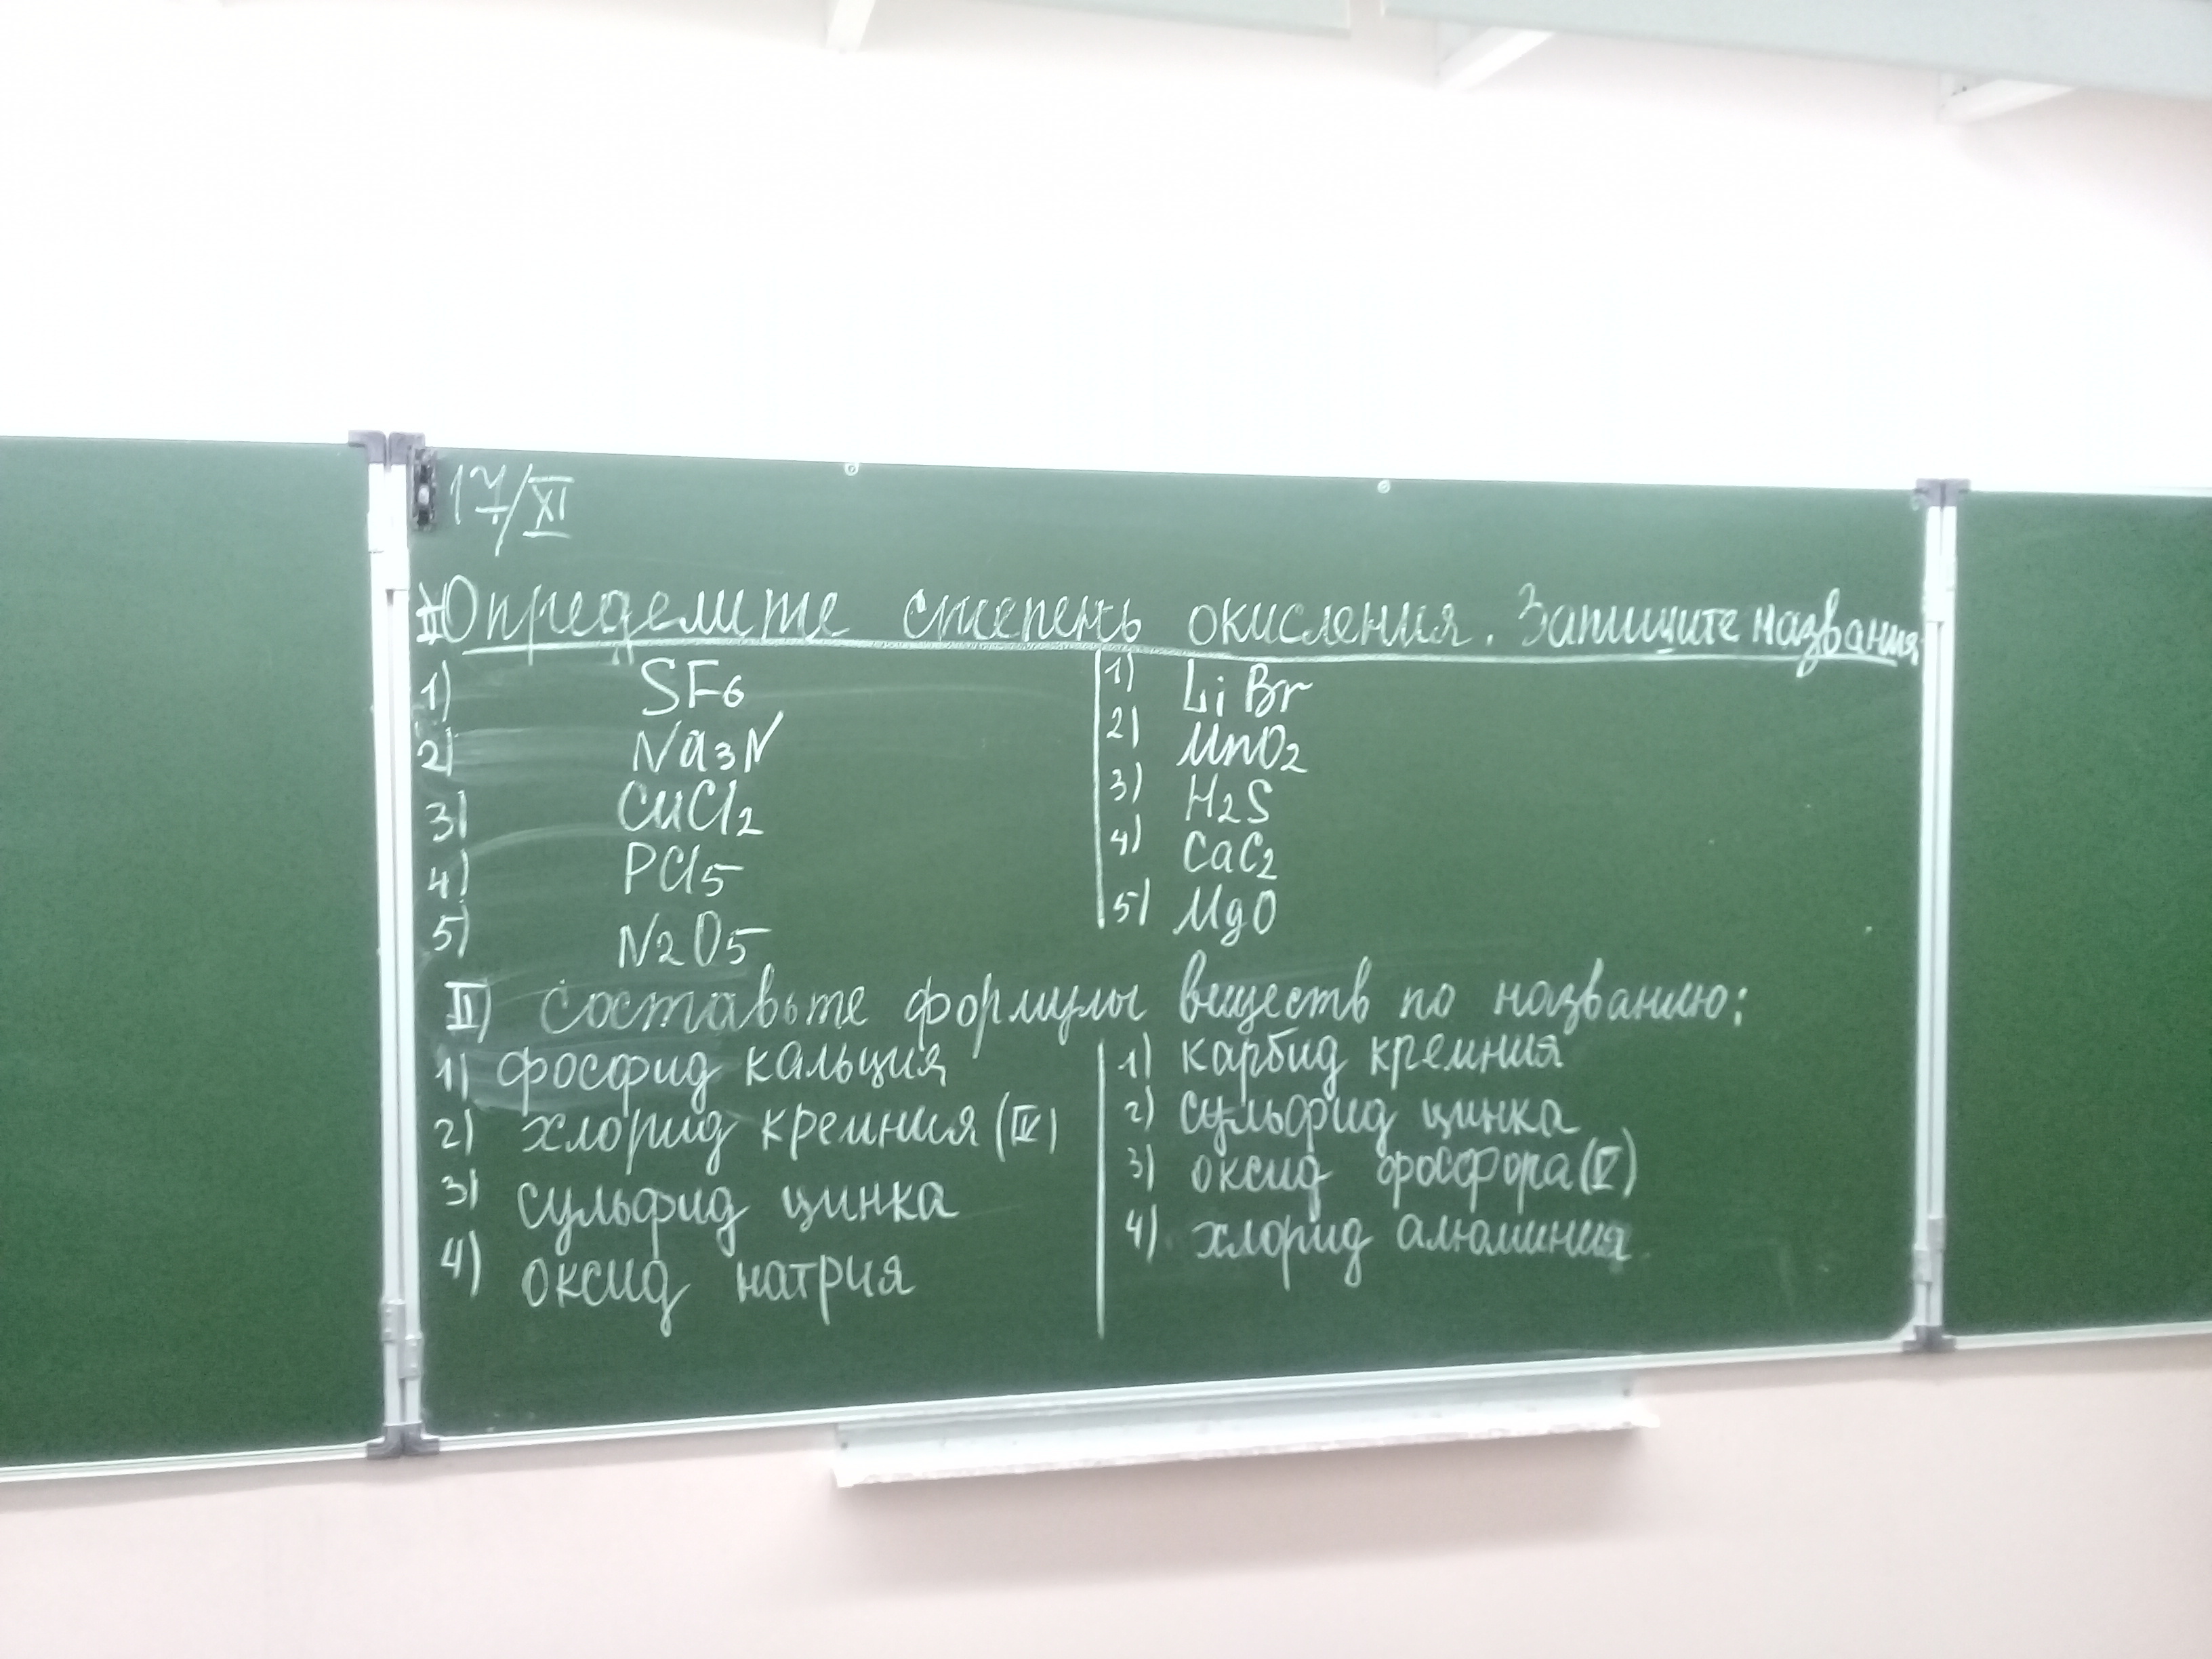 17/XI
I) Определите степень окисления. Запишите названия.
1) SF6
2) Na3N
3) CuCl2
4) PCl5
5) N2O5
1) LiBr
2) MnO2
3) H2S
4) CaC2
5) MgO
II) составьте формулы веществ по названию:
1) фосфид кальция
2) хлорид кремния (IV)
3) сульфид цинка
4) оксид натрия
1) карбид кремния
2) сульфид цинка
3) оксид фосфора (V)
4) хлорид алюминия